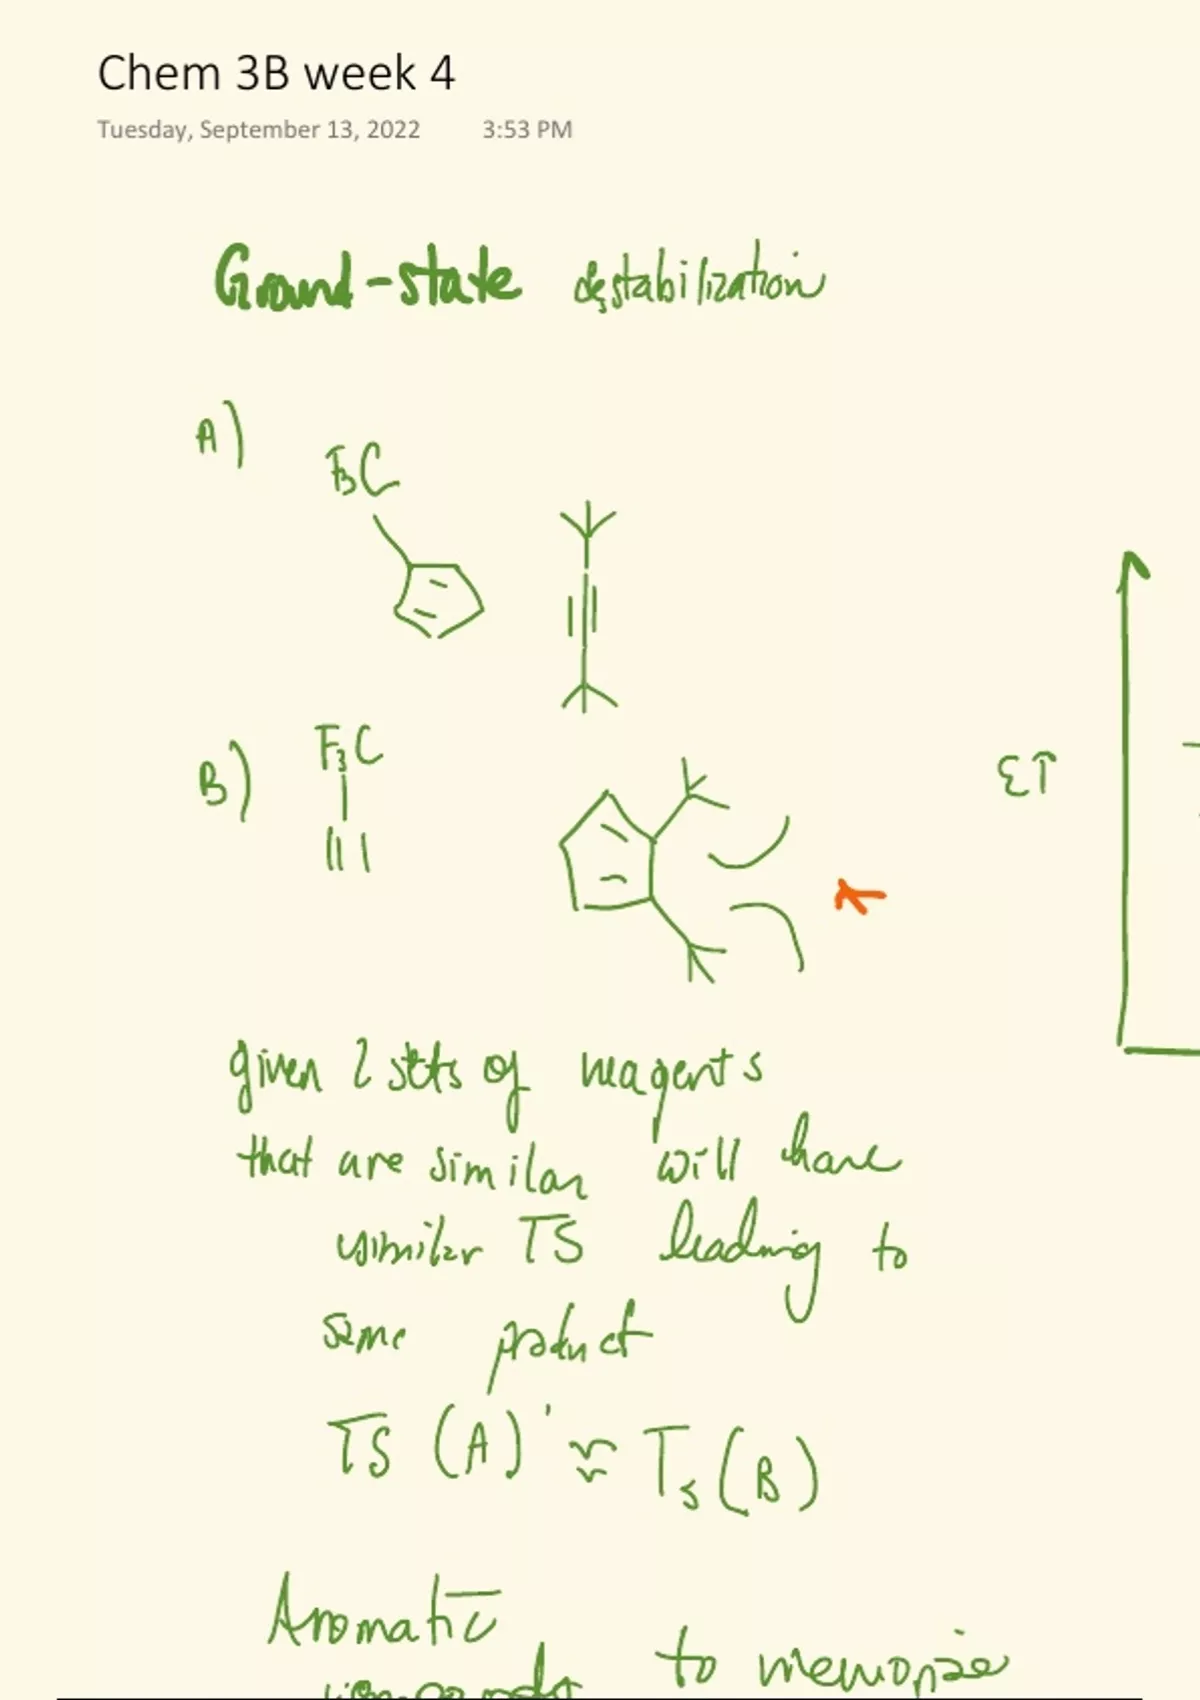 Chem 3B week 4
Tuesday, September 13, 2022 3:53 PM
Ground-state destabilization
A)
F3C
B)
F3C
E↑
given 2 sets of reagents
that are similar will have
similar TS leading to
same product
TS (A) ≈ Ts (B)
Aromatic
compounds to memorize